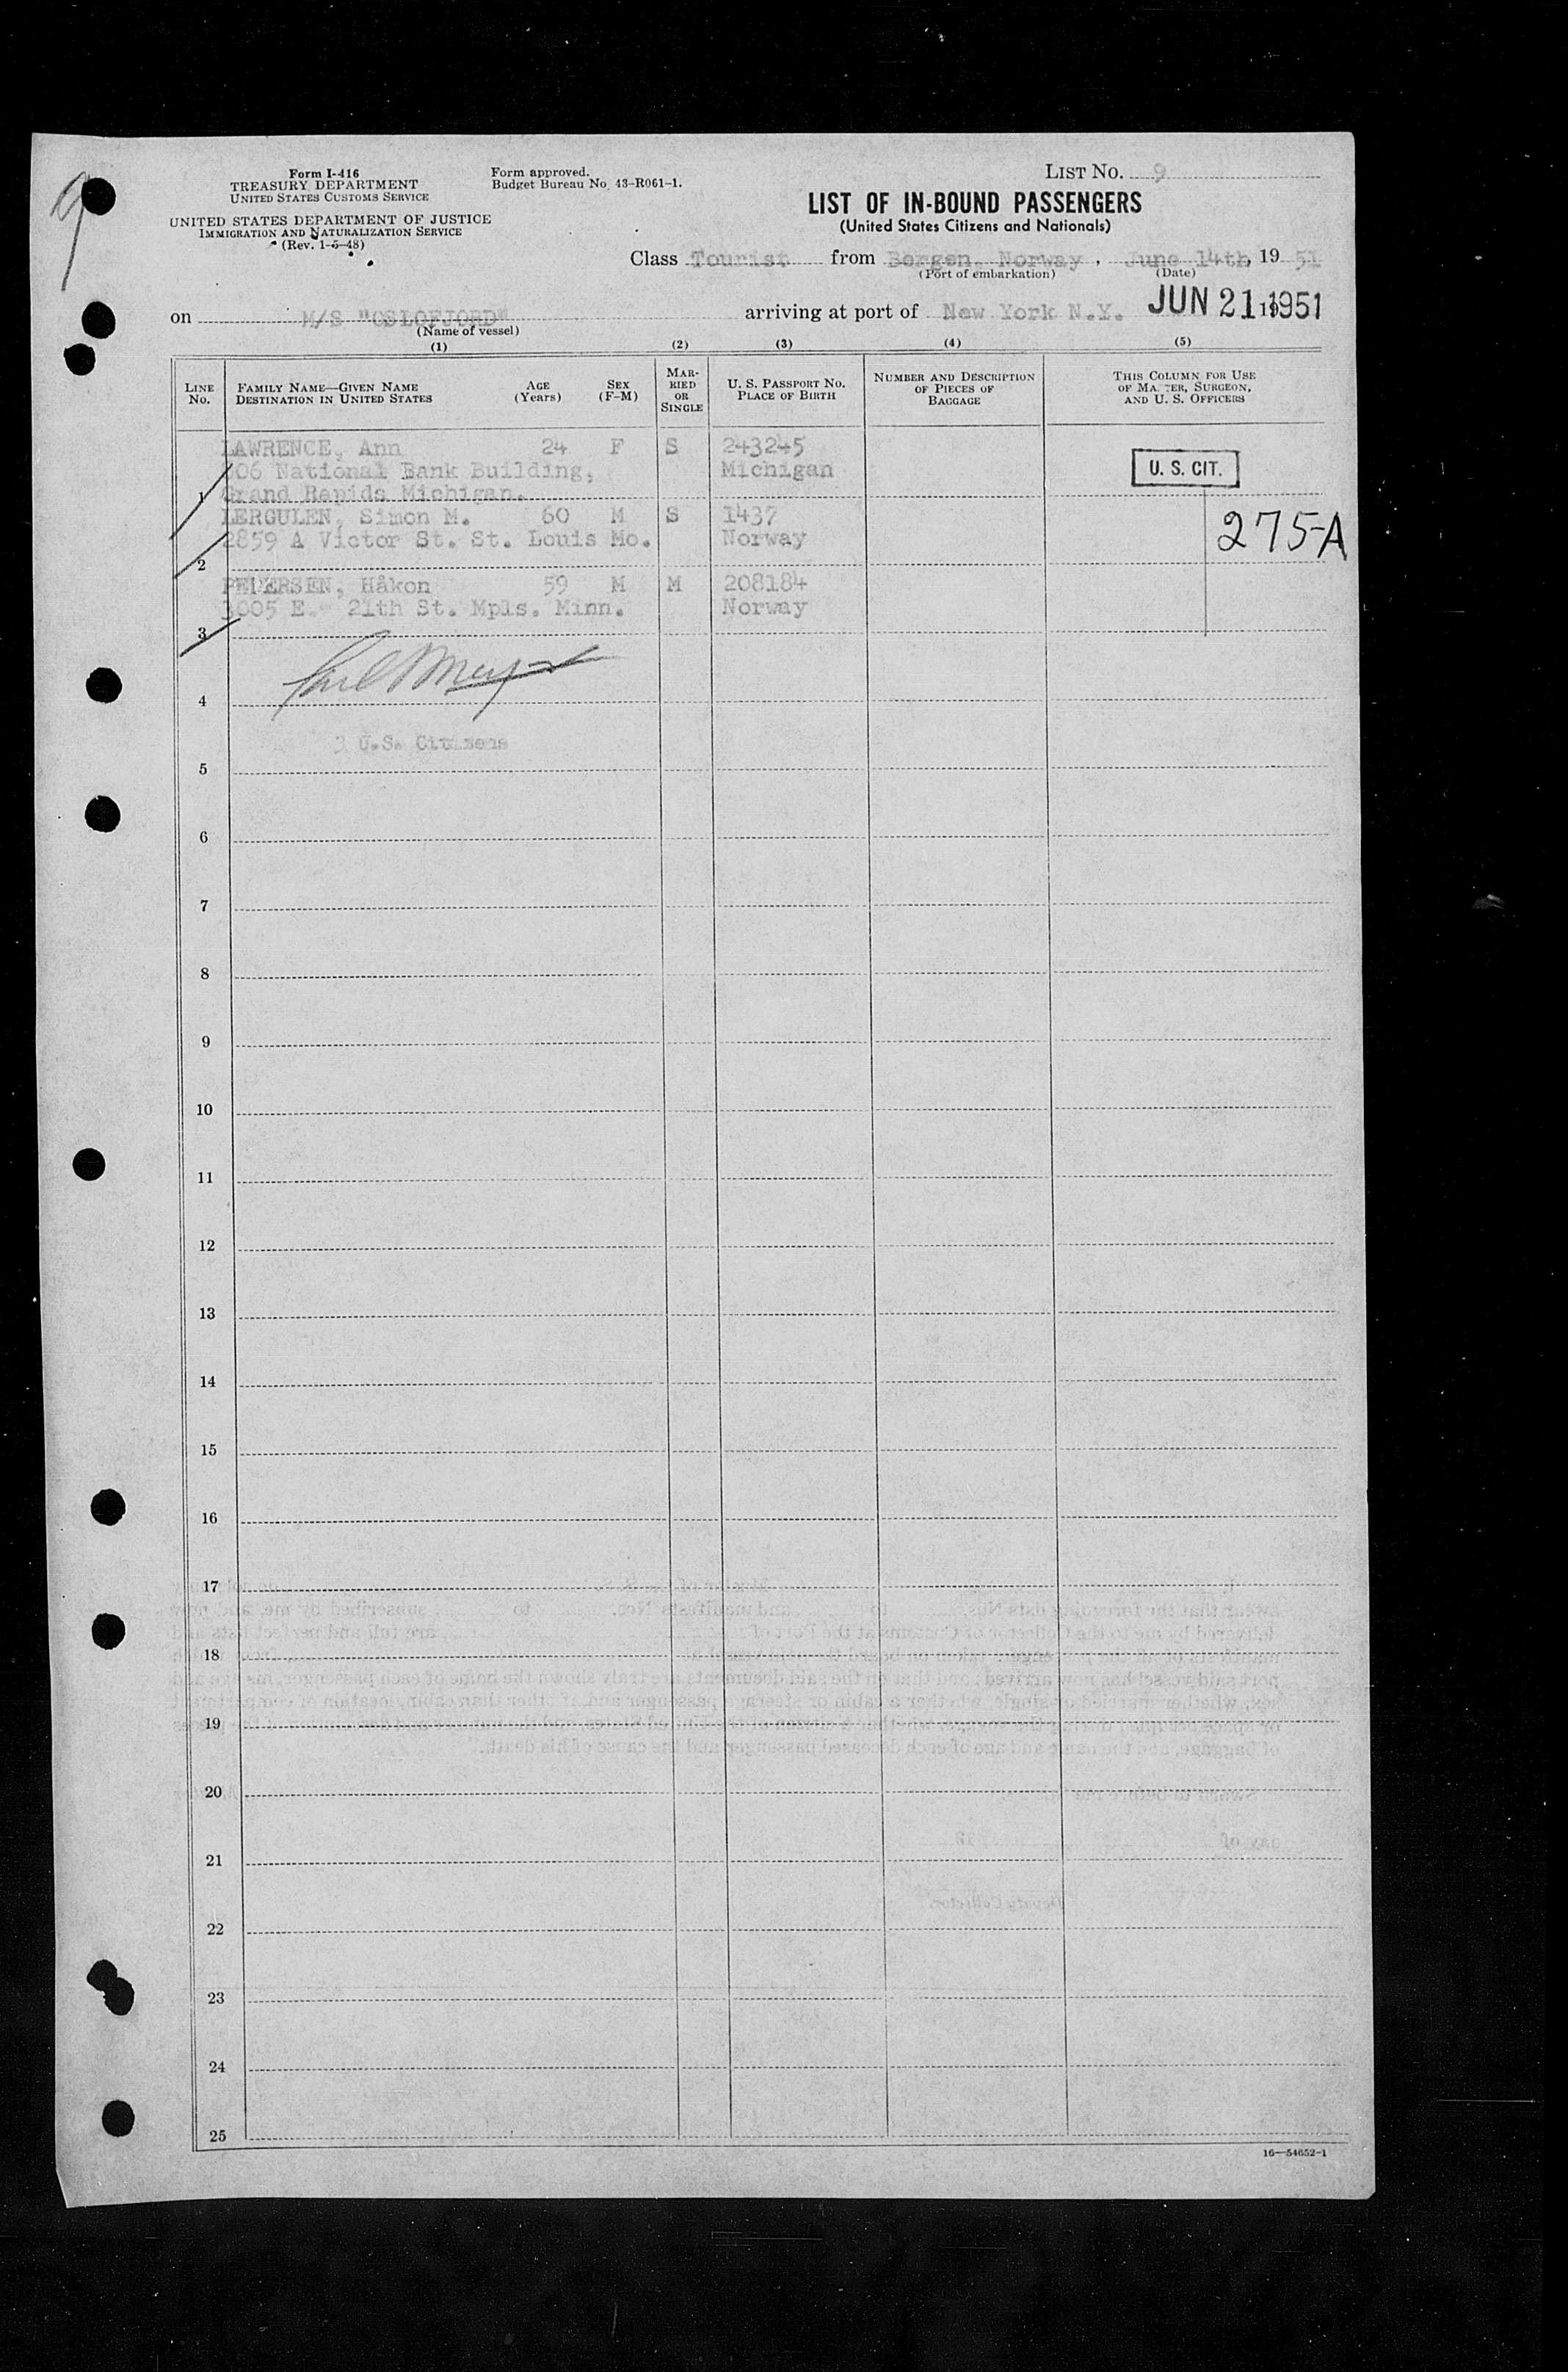 9
Form I-416
TREASURY DEPARTMENT
UNITED STATES CUSTOMS SERVICE
UNITED STATES DEPARTMENT OF JUSTICE
IMMIGRATION AND NATURALIZATION SERVICE
(Rev. 1-5-48)
Form approved.
Budget Bureau No. 43-R061-1.
LIST NO. 9
LIST OF IN-BOUND PASSENGERS
(United States Citizens and Nationals)
Class Tourist from Bergen, Norway, June 14th, 19 51
(Port of embarkation) (Date)
on M/S "OSLOFJORD" arriving at port of New York N.Y. JUN 21 1951
(Name of vessel)
(1) (2) (3) (4) (5)
LINE No. FAMILY NAME—GIVEN NAME DESTINATION IN UNITED STATES AGE (Years) SEX (F-M) MARRIED OR SINGLE U. S. PASSPORT NO. PLACE OF BIRTH NUMBER AND DESCRIPTION OF PIECES OF BAGGAGE THIS COLUMN FOR USE OF MASTER, SURGEON, AND U. S. OFFICERS
LAWRENCE, Ann 24 F S 243245
National Bank Building, Michigan U. S. CIT.
1 Grand Rapids Michigan.
LERGULEN, Simon M. 60 M S 1437 275-A
2859 A Victor St. St. Louis Mo. Norway
2
PEDERSEN, Håkon 59 M M 208184
3005 E. 21th St. Mpls. Minn. Norway
3
4
3 U.S. Citizens
5
6
7
8
9
10
11
12
13
14
15
16
17
18
19
20
21
22
23
24
25
16—54652-1